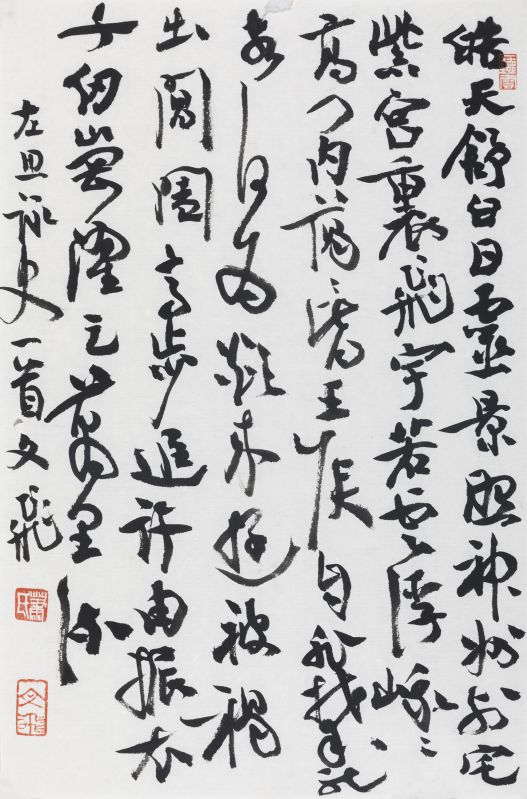 皓天舒白日靈景照神州列宅
紫宮裏飛宇若雲浮峨〻
高门内藹〻皆王侯自非攀龍
客何为欻来遊被褐
出閶闔高步追許由振衣
千仞崗濯足萬里流
左思詠史一首文飛
蕭氏
文飛